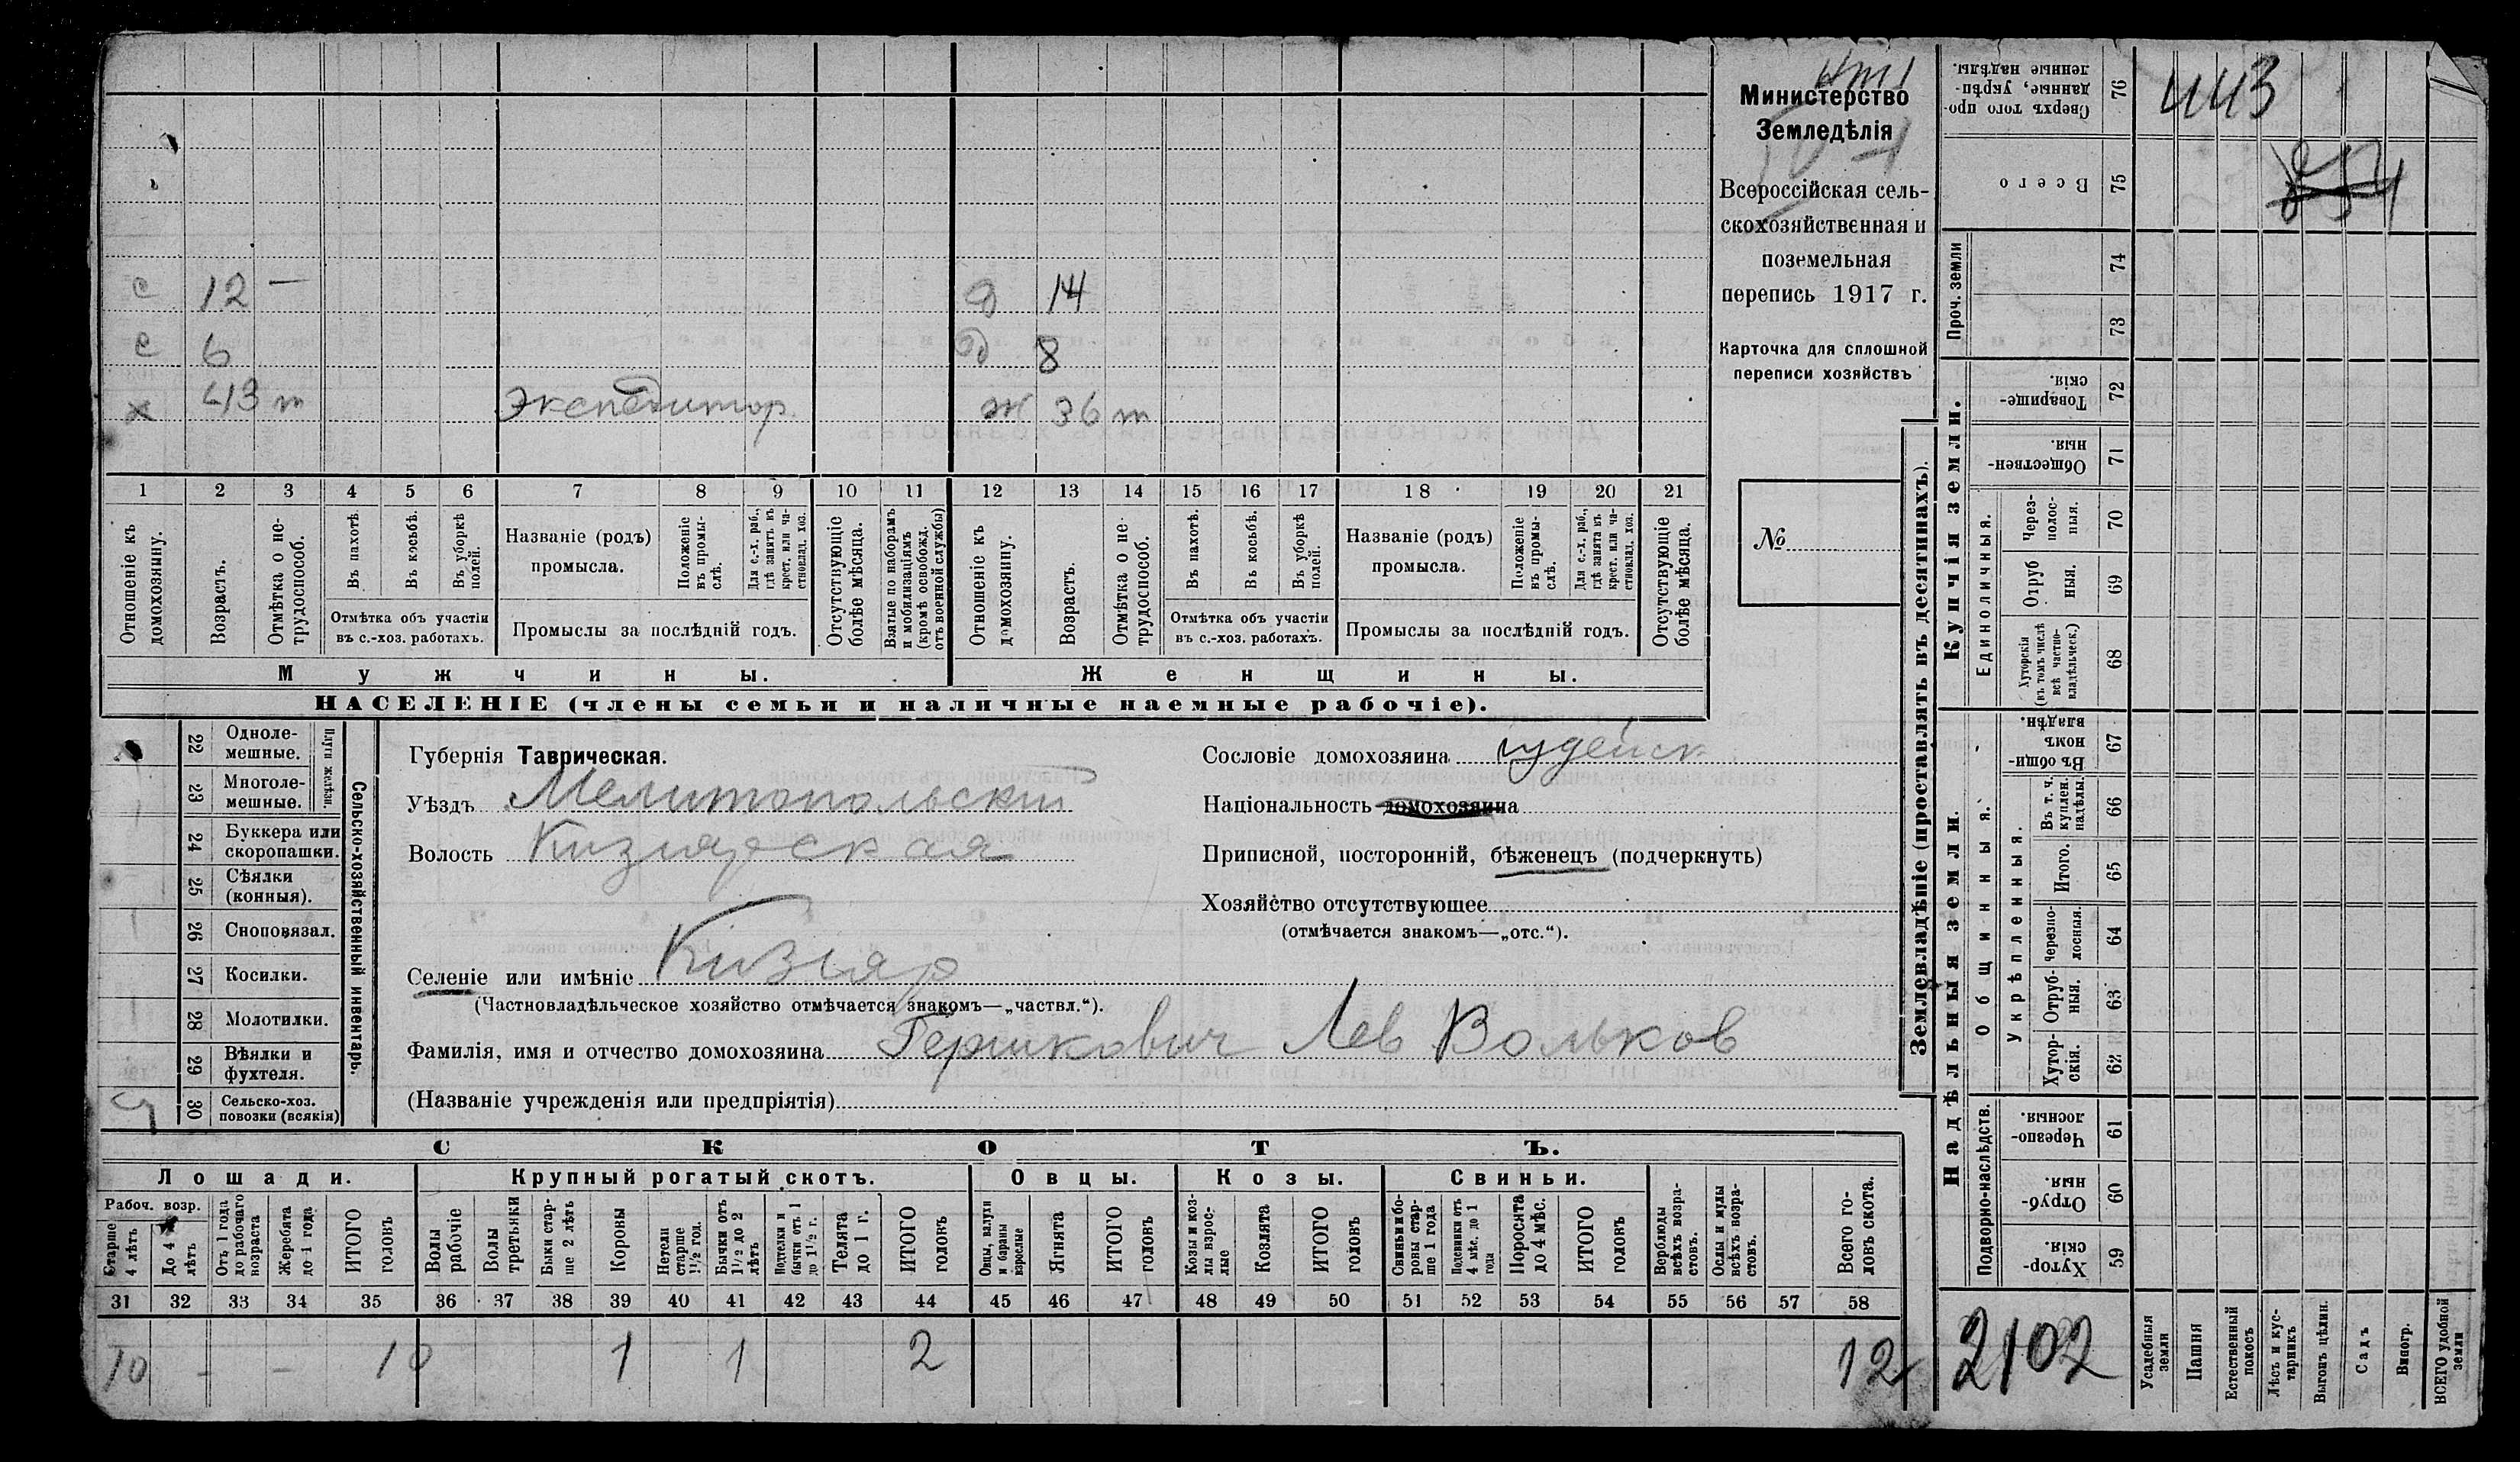 с 12 — д 14
с 6 д 8
х 43 т экспедитор ж 36 т
1 2 3 4 5 6 7 8 9 10 11 12 13 14 15 16 17 18 19 20 21
Отношеніе къ домохозяину.
Возрастъ.
Отмѣтка о не-
трудоспособ.
Въ пахотѣ.
Въ косьбѣ.
Въ уборкѣ
полей.
Отмѣтка объ участіи
въ с.-хоз. работахъ.
Названіе (родъ)
промысла.
Положеніе
въ промы-
слѣ.
Для с.-х. раб.,
гдѣ занятъ въ
крест. или ча-
стновлад. хоз.
Промыслы за послѣдній годъ.
Отсутствующіе
болѣе мѣсяца.
Взятые по наборамъ
и мобилизаціямъ
(кромѣ освобожд.
отъ военной службы)
Отношеніе къ
домохозяину.
Возрастъ.
Отмѣтка о не-
трудоспособ.
Въ пахотѣ.
Въ косьбѣ.
Въ уборкѣ
полей.
Отмѣтка объ участіи
въ с.-хоз. работахъ.
Названіе (родъ)
промысла.
Положеніе
въ промы-
слѣ.
Для с.-х. раб.,
гдѣ занята въ
крест. или ча-
стновлад. хоз.
Промыслы за послѣдній годъ.
Отсутствующіе
болѣе мѣсяца.
Мужчины. Женщины.
НАСЕЛЕНІЕ (члены семьи и наличные наемные рабочіе).
Министерство
Земледѣлія
Всероссійская сель-
скохозяйственная и
поземельная
перепись 1917 г.
Карточка для сплошной
переписи хозяйствъ
№
22 Одноле-
мешные.
23 Многоле-
мешные.
Плуги желѣзн.
24 Буккера или
скоропашки.
25 Сѣялки
(конныя).
26 Сноповязал.
27 Косилки.
28 Молотилки.
29 Вѣялки и
фухтеля.
30 Сельско-хоз.
повозки (всякія)
Сельско-хозяйственный инвентарь.
Губернія Таврическая.
Уѣздъ Мелитопольский
Волость Кизиярская
Селеніе или имѣніе Кизияр
(Частновладѣльческое хозяйство отмѣчается знакомъ—„частвл.“).
Фамилія, имя и отчество домохозяина Гершкович Лев Вольков
(Названіе учрежденія или предпріятія)
Сословіе домохозяина иудейск
Національность домохозяина
Приписной, посторонній, бѣженецъ (подчеркнуть)
Хозяйство отсутствующее
(отмѣчается знакомъ—„отс.“).
СКОТЪ.
Лошади. Крупный рогатый скотъ. Овцы. Козы. Свиньи.
Рабоч. возр.
Старше
4 лѣтъ
До 4
лѣтъ
Отъ 1 года
до рабочаго
возраста
Жеребята
до 1 года
ИТОГО
головъ
Волы
рабочіе
Волы
третьяки
Быки стар-
ше 2 лѣтъ
Коровы
Нетели
старше
1½ год.
Бычки отъ
1½ до 2
лѣтъ
Подтелки и
бычки отъ 1
до 1½ г.
Телята
до 1 г.
ИТОГО
головъ
Овцы, валухи
и бараны
взрослые
Ягнята
ИТОГО
головъ
Козы и коз-
лы взрос-
лые
Козлята
ИТОГО
головъ
Свиньи и бо-
ровы стар-
ше 1 года
Подсвинки отъ
4 мѣс. до 1
года
Поросята
до 4 мѣс.
ИТОГО
головъ
Верблюды
всѣхъ возра-
стовъ.
Ослы и мулы
всѣхъ возра-
стовъ.
Всего го-
ловъ скота.
31 32 33 34 35 36 37 38 39 40 41 42 43 44 45 46 47 48 49 50 51 52 53 54 55 56 57 58
10 - - 10 1 1 2 12
Землевладѣніе (проставлять въ десятинахъ).
Надѣльныя земли. Купчія земли. Проч. земли
Сверхъ того про-
данные, укрѣп-
ленные надѣлы.
76
443
Всего
75
74
73
Товарище-
скія.
72
Обществен-
ныя.
71
Единоличныя.
Через-
полос-
ныя.
70
Отруб
ныя.
69
Хуторскія
(въ томъ числѣ
всѣ частно-
владѣльческ.)
68
Общинныя.
Въ общи-
номъ
владѣн.
67
Укрѣпленныя.
Въ т. ч.
куплен.
надѣлы.
66
Итого.
65
Черезпо-
лосныя.
64
Отруб-
ныя.
63
Хутор-
скія.
62
Подворно-наслѣдств.
Черезпо-
лосныя.
61
Отруб-
ныя.
60
Хутор-
скія.
59
2102
Усадебныя
земли
Пашня
Естественный
покосъ
Лѣсъ и кус-
тарникъ
Выгонъ цѣлин.
Садъ
Виногр.
ВСЕГО удобной
земли